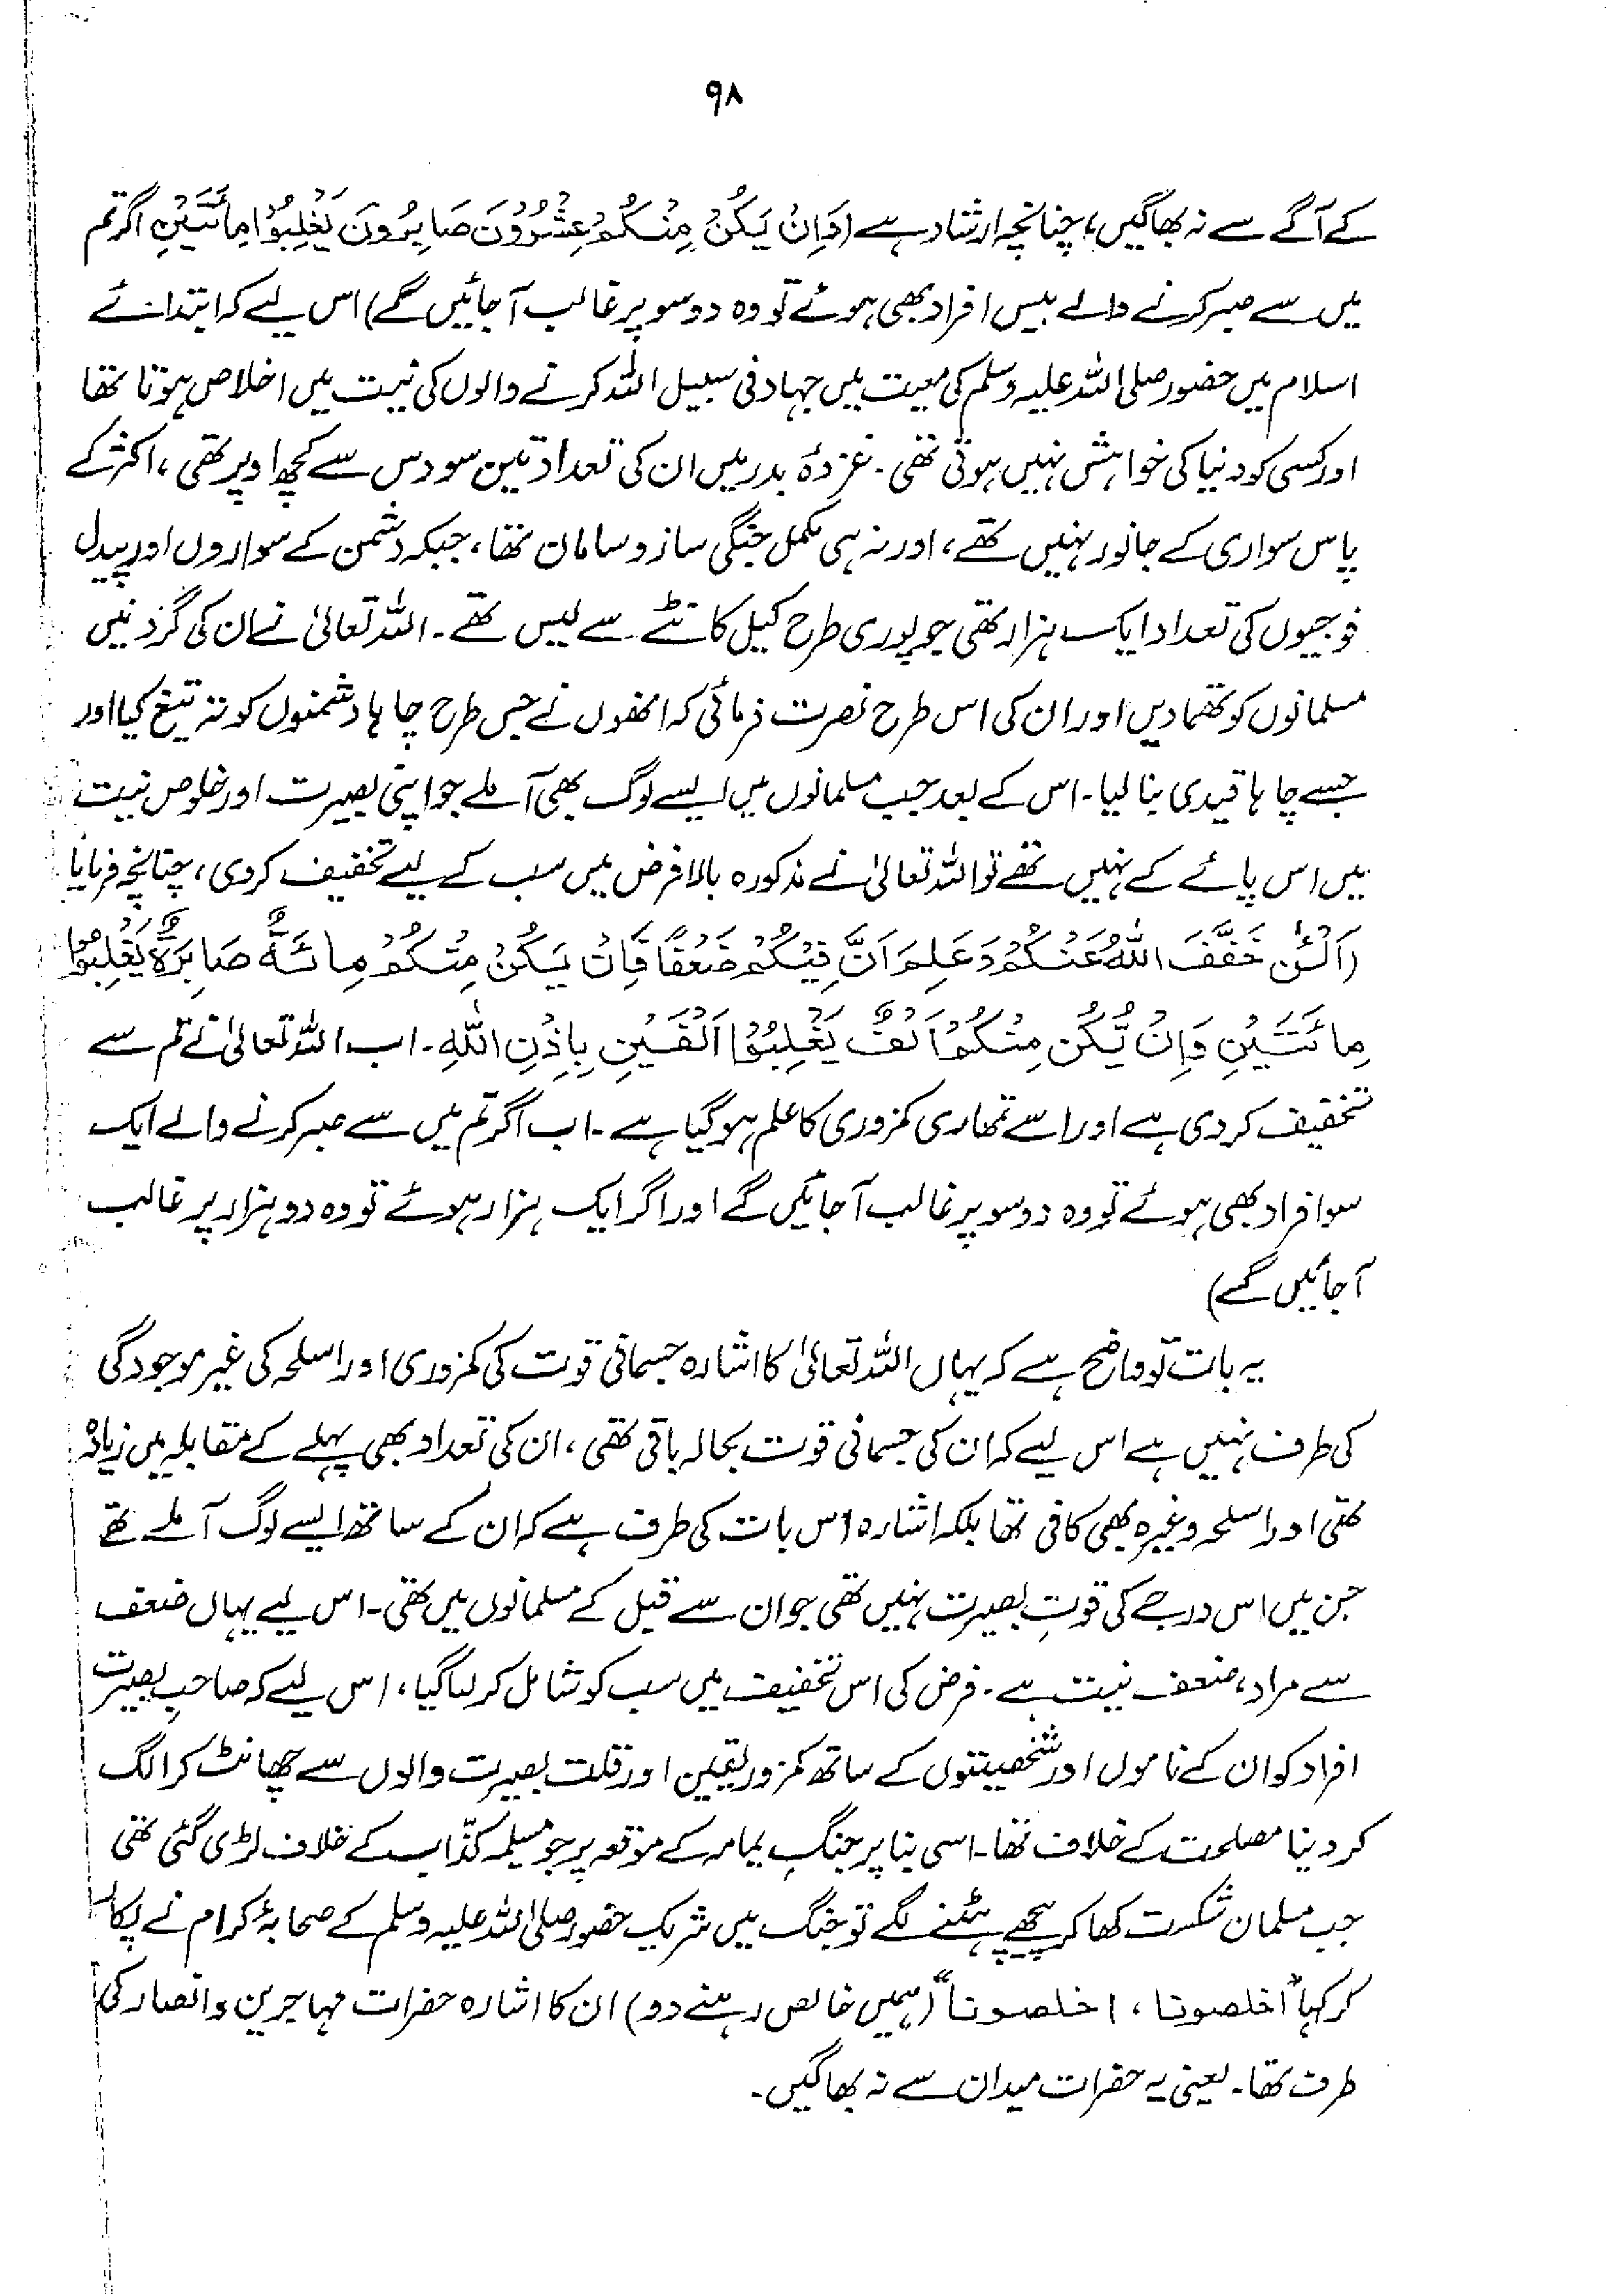 ۹۸
کے آگے سے نہ بھاگیں، چنانچہ ارشاد ہے (وَاِنْ يَكُنْ مِنْكُمْ عِشْرُوْنَ صَابِرُونَ يَغْلِبُوْا مِائَتَيْنِ اگر تم
میں سے صبر کرنے والے بیس افراد بھی ہوئے تو وہ دو سو پر غالب آجائیں گے) اس لیے کہ ابتدائے
اسلام میں حضور صلی اللہ علیہ وسلم کی معیت میں جہاد فی سبیل اللہ کرنے والوں کی نیت میں اخلاص ہوتا تھا
اور کسی کو دنیا کی خواہش نہیں ہوتی تھی۔ غزوۂ بدر میں ان کی تعداد تین سو دس سے کچھ اوپر تھی، اکثر کے
پاس سواری کے جانور نہیں تھے، اور نہ ہی مکمل جنگی ساز و سامان تھا، جبکہ دشمن کے سواروں اور پیدل
فوجیوں کی تعداد ایک ہزار تھی جو پوری طرح کیل کانٹے سے لیس تھے۔ اللہ تعالیٰ نے ان کی گردنیں
مسلمانوں کو تھما دیں اور ان کی اس طرح نصرت فرمائی کہ انھوں نے جس طرح چاہا دشمنوں کو تہ تیغ کیا اور
جسے چاہا قیدی بنا لیا۔ اس کے بعد جب مسلمانوں میں ایسے لوگ بھی آملے جو اپنی بصیرت اور خلوص نیت
میں اس پائے کے نہیں تھے تو اللہ تعالیٰ نے مذکورہ بالا فرض میں سب کے لیے تخفیف کر دی، چنانچہ فرمایا
(اَلْئٰنَ خَفَّفَ اللّٰهُ عَنْكُمْ وَعَلِمَ اَنَّ فِيْكُمْ ضَعْفًا فَاِنْ يَكُنْ مِنْكُمْ مِائَةٌ صَابِرَةٌ يَغْلِبُوْا
مِائَتَيْنِ وَاِنْ يَّكُن مِنْكُمْ اَلْفٌ يَغْلِبُوْا اَلْفَيْنِ بِاِذْنِ اللّٰهِ۔ اب اللہ تعالیٰ نے تم سے
تخفیف کر دی ہے اور اسے تمھاری کمزوری کا علم ہو گیا ہے۔ اب اگر تم میں سے صبر کرنے والے ایک
سو افراد بھی ہوئے تو وہ دو سو پر غالب آجائیں گے اور اگر ایک ہزار ہوئے تو وہ دو ہزار پر غالب
آجائیں گے)
یہ بات تو واضح ہے کہ یہاں اللہ تعالیٰ کا اشارہ جسمانی قوت کی کمزوری اور اسلحہ کی غیر موجودگی
کی طرف نہیں ہے اس لیے کہ ان کی جسمانی قوت بحالہ باقی تھی، ان کی تعداد بھی پہلے کے مقابلہ میں زیادہ
تھی اور اسلحہ وغیرہ بھی کافی تھا بلکہ اشارہ اس بات کی طرف ہے کہ ان کے ساتھ ایسے لوگ آملے تھے
جن میں اس درجے کی قوتِ بصیرت نہیں تھی جو ان سے قبل کے مسلمانوں میں تھی۔ اس لیے یہاں ضعف
سے مراد، ضعف نیت ہے۔ فرض کی اس تخفیف میں سب کو شامل کر لیا گیا، اس لیے کہ صاحبِ بصیرت
افراد کو ان کے ناموں اور شخصیتوں کے ساتھ کمزور یقین اور قلت بصیرت والوں سے چھانٹ کر الگ
کر دینا مصلحت کے خلاف تھا۔ اسی بنا پر جنگِ یمامہ کے موقعہ پر جو مسیلمہ کذّاب کے خلاف لڑی گئی تھی
جب مسلمان شکست کھا کر پیچھے ہٹنے لگے تو جنگ میں شریک حضور صلی اللہ علیہ وسلم کے صحابۂ کرام نے پکار
کر کہا "اخلصونا، اخلصونا" (ہمیں خالص رہنے دو) ان کا اشارہ حضرات مہاجرین و انصار کی
طرف تھا۔ یعنی یہ حضرات میدان سے نہ بھاگیں۔